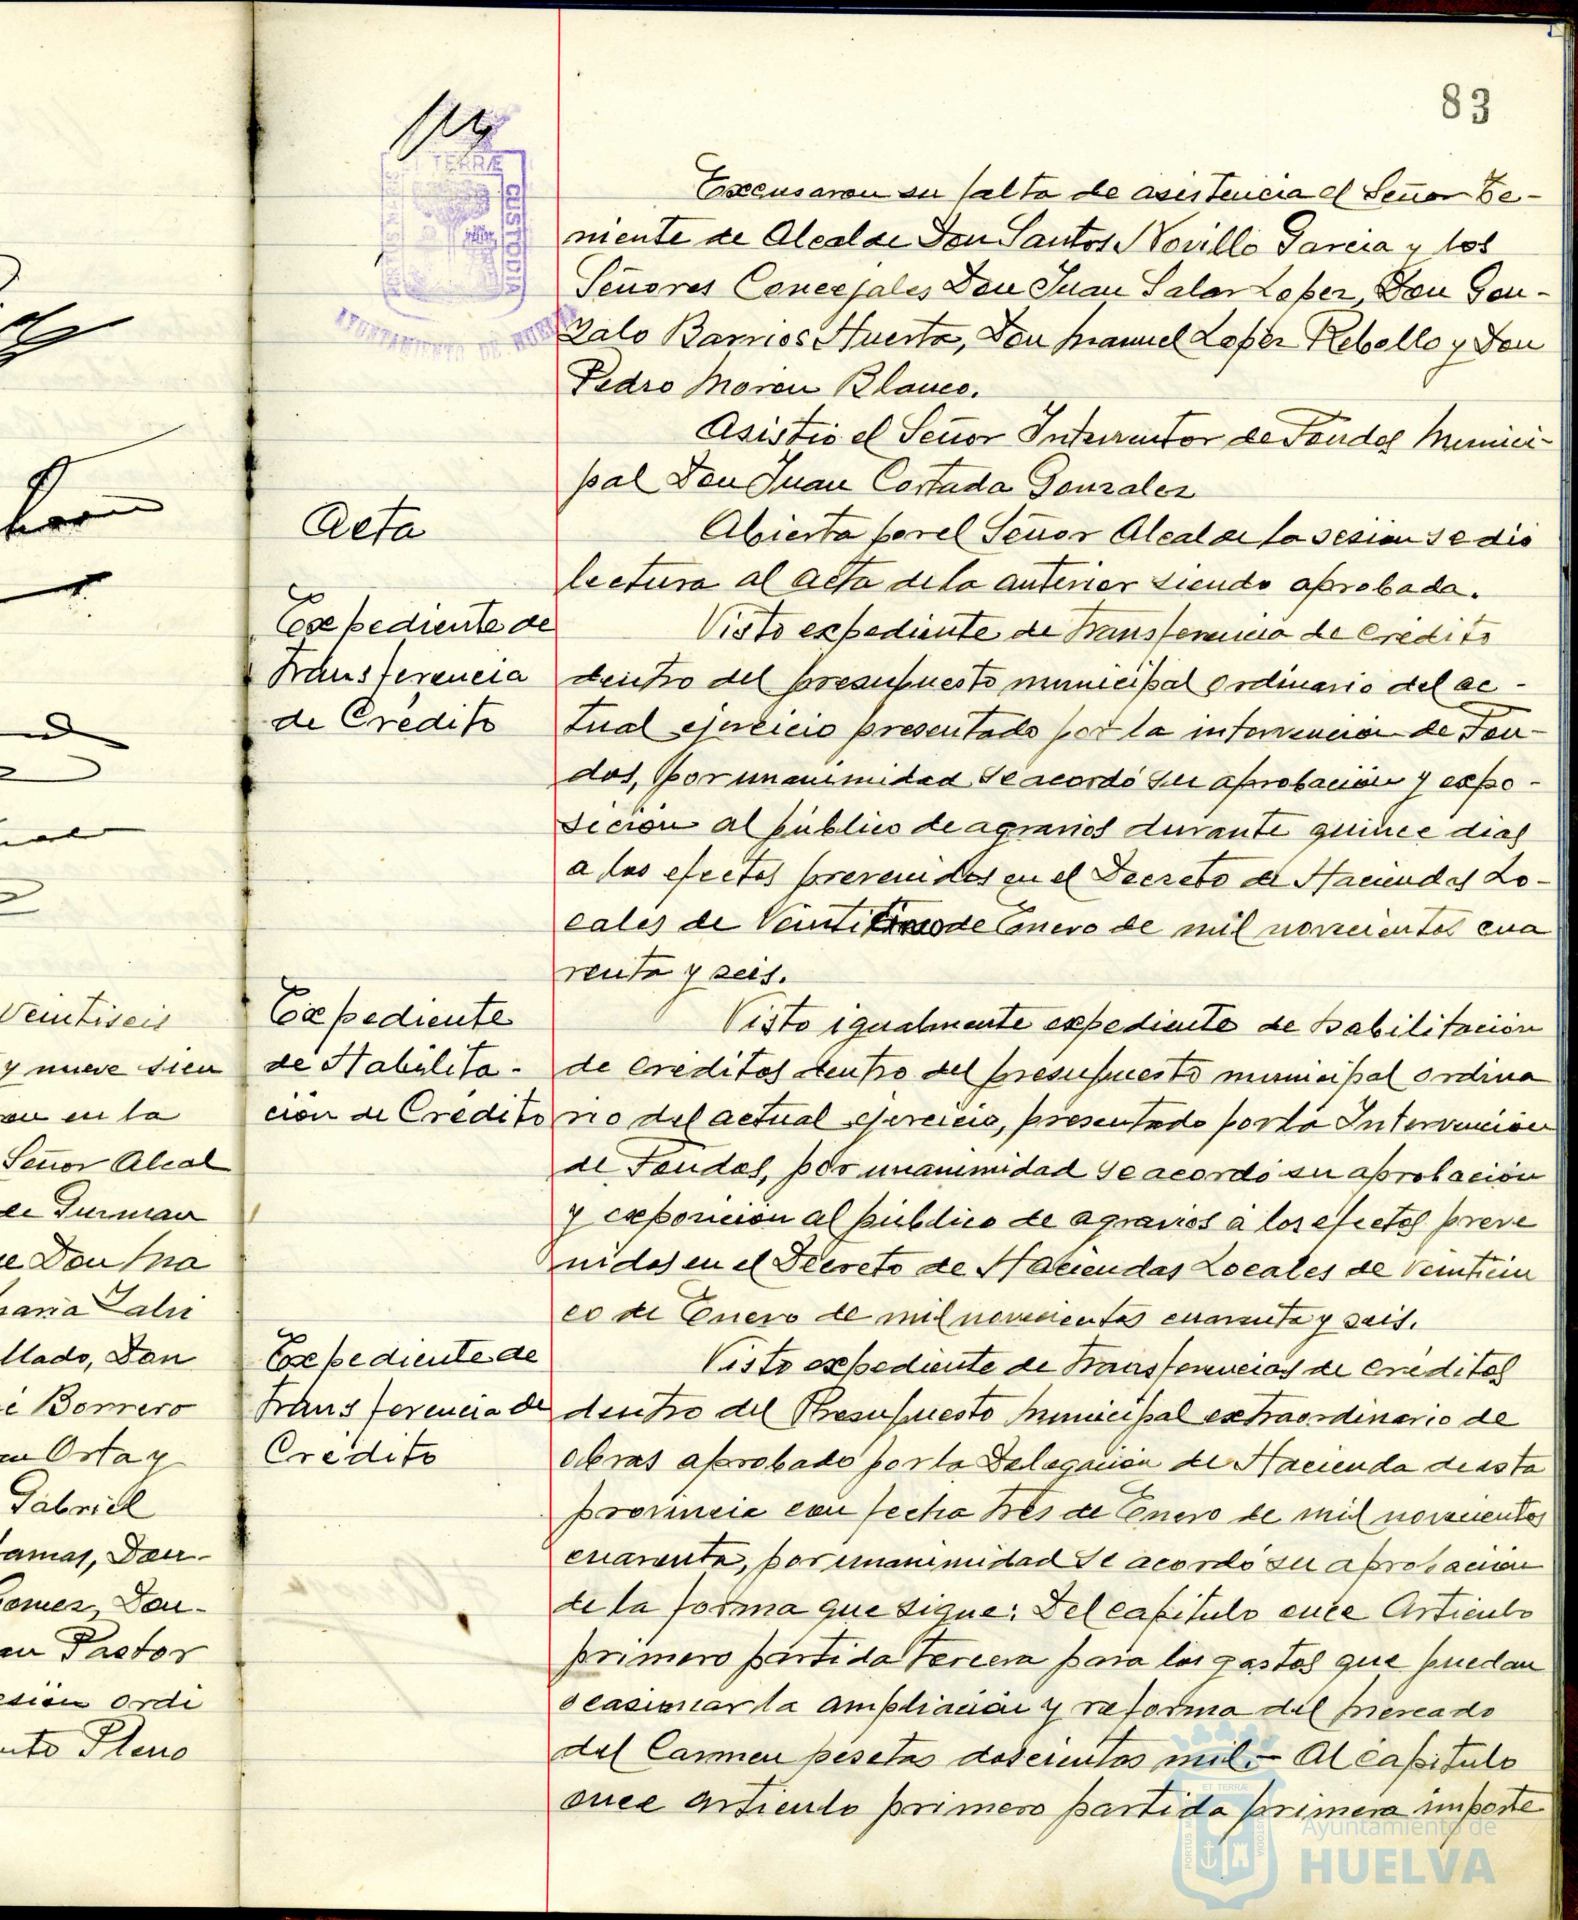 83
Excusaron su falta de asistencia el Señor Te-
niente de Alcalde Don Santos Novillo Garcia y los
Señores Concejales Don Juan Salas Lopez, Don Gon-
zalo Barrios Huerta, Don Manuel Lopez Rebollo y Don
Pedro Moron Blanco.
Asistió el Señor Interventor de Fondos Munici-
pal Don Juan Cortada Gonzalez
Acta
Abierta por el Señor Alcalde la sesion se dió
lectura al acta de la anterior siendo aprobada.
Expediente de
Transferencia
de Crédito
Visto expediente de transferencia de crédito
dentro del presupuesto municipal ordinario del ac-
tual ejercicio presentado por la intervención de Fon-
dos, por unanimidad se acordó su aprobación y expo-
sición al público de agravios durante quince dias
a los efectos prevenidos en el Decreto de Haciendas Lo-
cales de Veinticinco de Enero de mil novecientos cua
renta y seis.
Expediente
de Habilita-
ción de Crédito
Visto igualmente expediente de habilitación
de créditos dentro del presupuesto municipal ordina
rio del actual ejercicio, presentado por la Intervención
de Fondos, por unanimidad se acordó su aprobación
y exposición al público de agravios a los efectos preve
nidos en el Decreto de Haciendas Locales de veinticin
co de Enero de mil novecientos cuarenta y seis.
Expediente de
transferencia de
Crédito
Visto expediente de transferencias de créditos
dentro del Presupuesto Municipal extraordinario de
obras aprobado por la Delegación de Hacienda de esta
provincia con fecha tres de Enero de mil novecientos
cuarenta, por unanimidad se acordó su aprobacion
de la forma que sigue: Del capítulo once Articulo
primero partida tercera para los gastos que puedan
ocasionar la ampliación y reforma del mercado
del Carmen pesetas doscientas mil.- Al capitulo
once articulo primero partida primera importe
Veintiseis
y nueve sien
en la
Señor Alcal
de Guzman
Don Ma
llado, Don
Borrero
Orta y
Gabriel
amas, Don-
Gomez, Don-
Pastor
esion ordi
nto Pleno
ET TERRÆ
CUSTODIA
AYUNTAMIENTO DE HUELVA
Ayuntamiento de
HUELVA